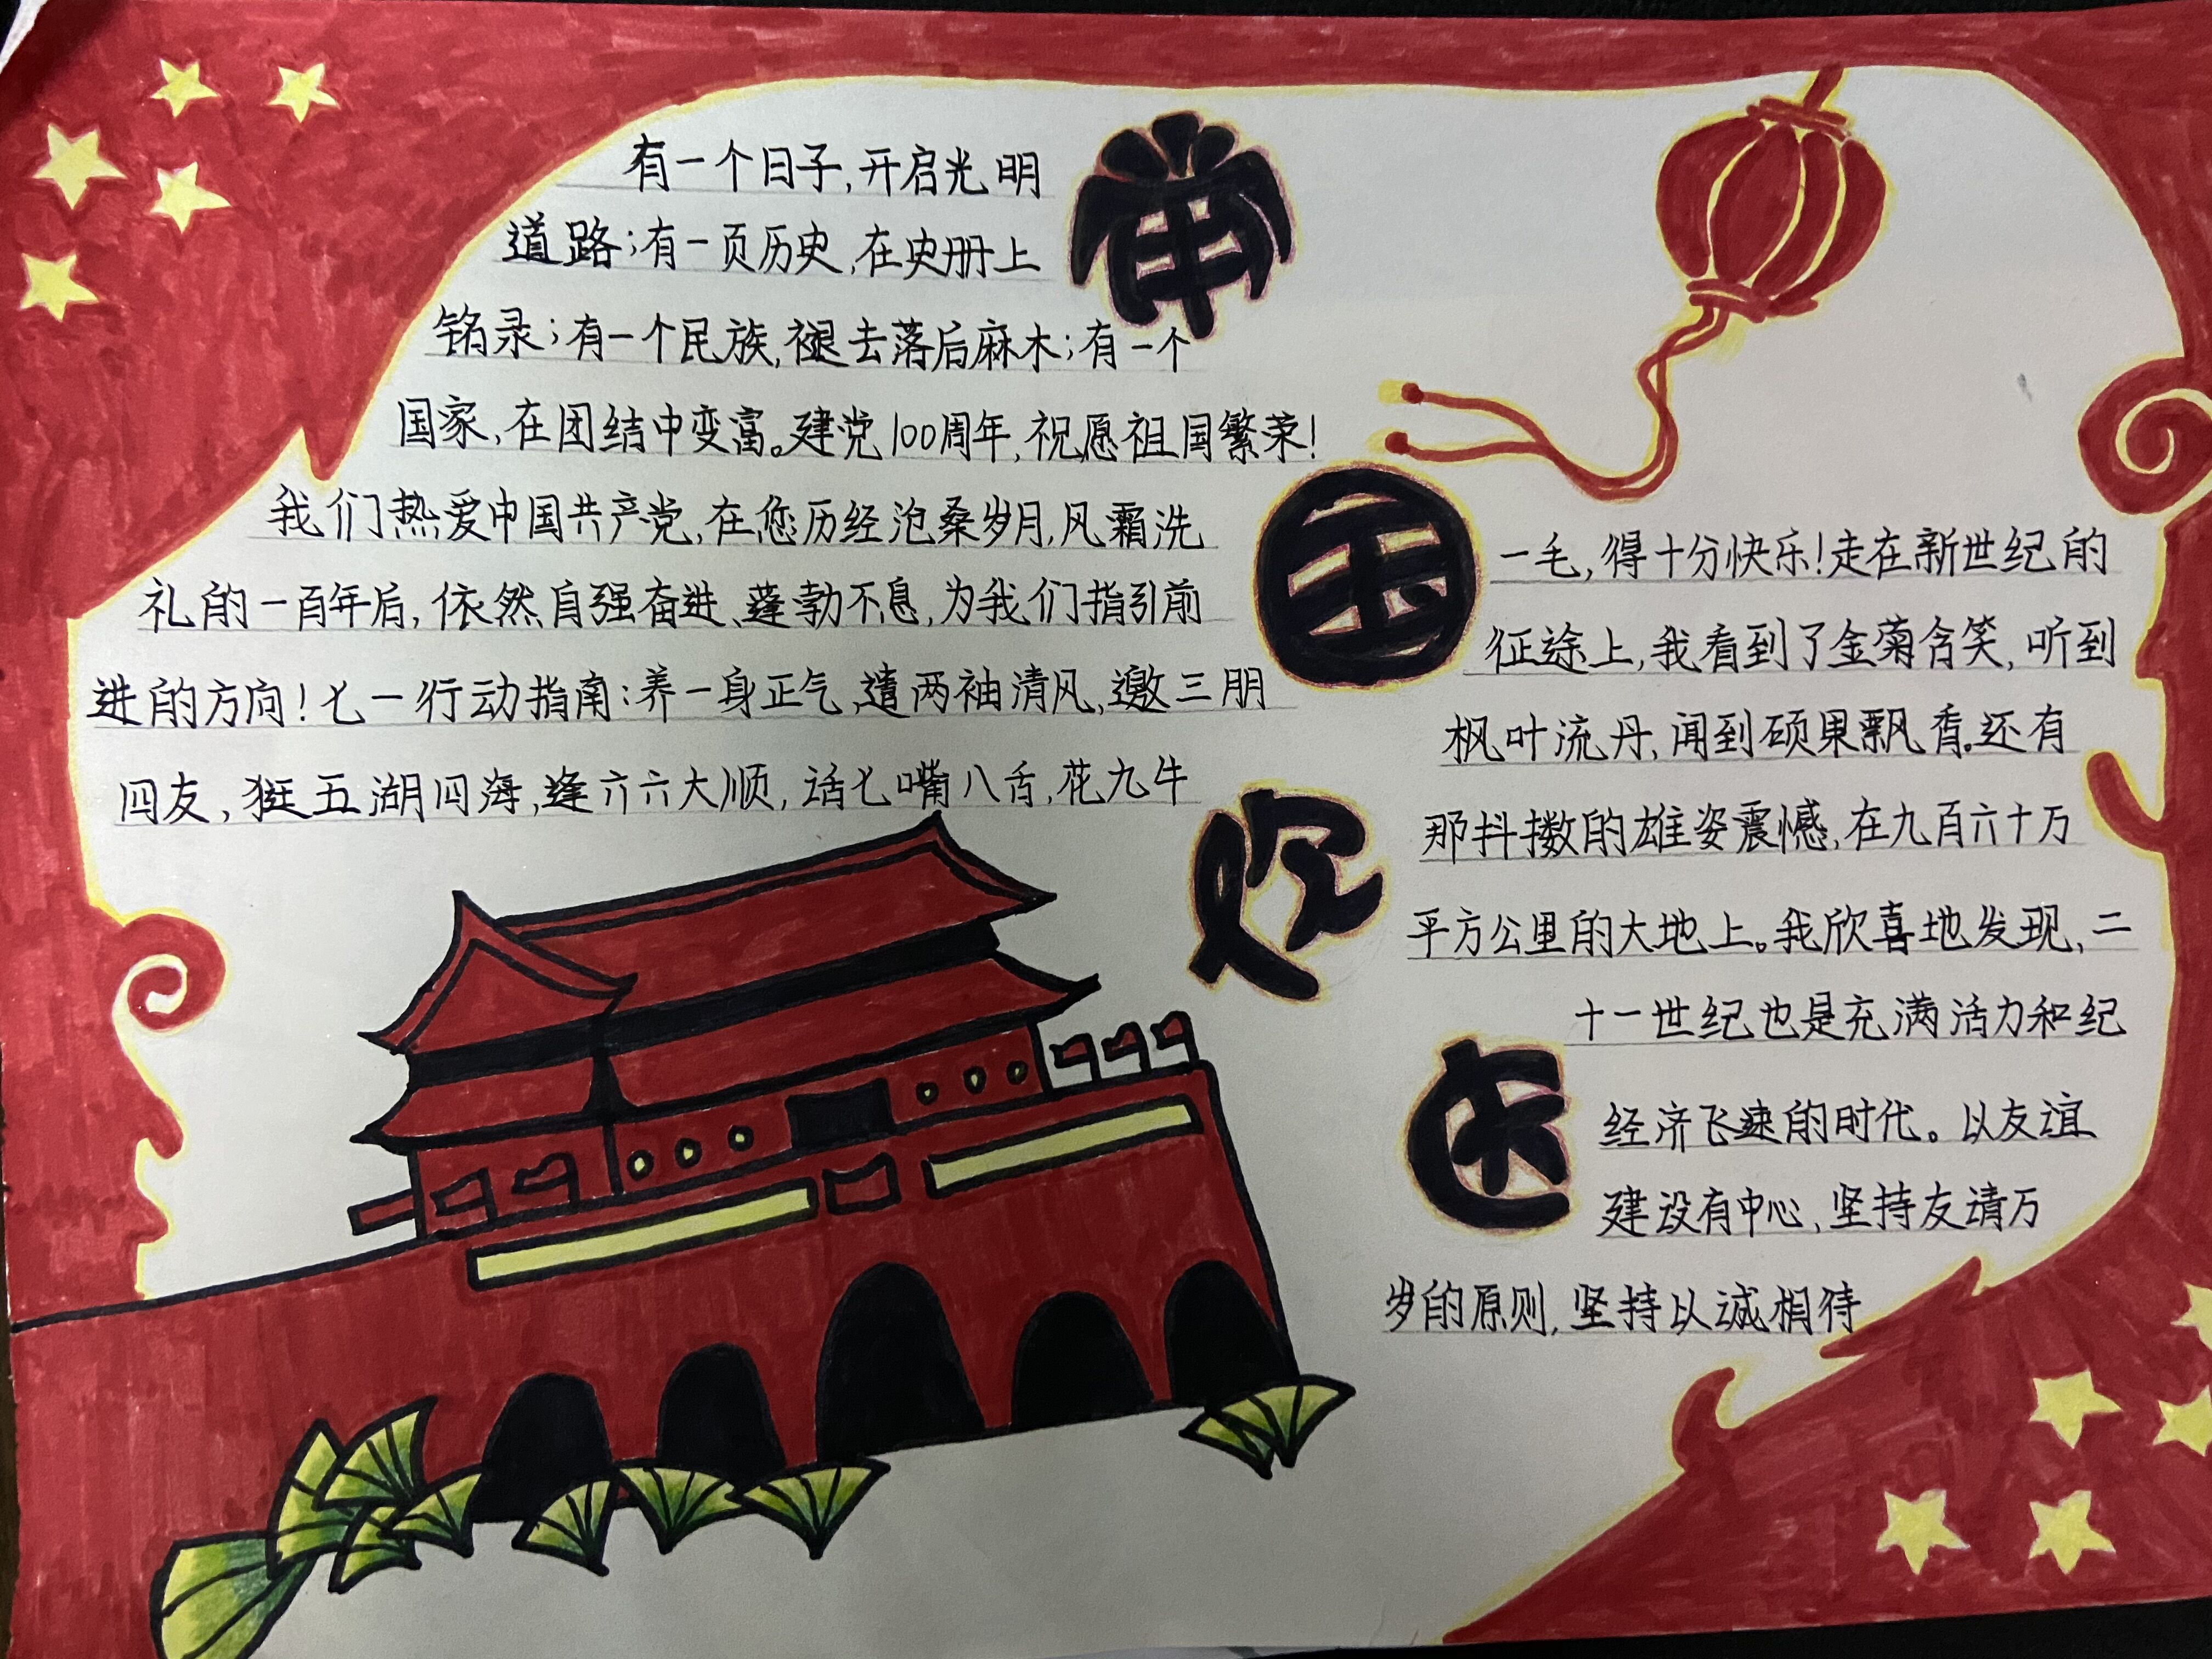 举
国
欢
庆
有一个日子,开启光明
道路;有一页历史,在史册上
铭录;有一个民族,褪去落后麻木;有一个
国家,在团结中变富。建党100周年,祝愿祖国繁荣!
我们热爱中国共产党,在您历经沧桑岁月,风霜洗
礼的一百年后,依然自强奋进、蓬勃不息,为我们指引前
进的方向!七一行动指南:养一身正气,遣两袖清风,邀三朋
四友,逛五湖四海,逢六六大顺,话七嘴八舌,花九牛
一毛,得十分快乐!走在新世纪的
征途上,我看到了金菊含笑,听到
枫叶流丹,闻到硕果飘香。还有
那抖擞的雄姿震憾,在九百六十万
平方公里的大地上。我欣喜地发现,二
十一世纪也是充满活力和纪
经济飞速的时代。以友谊
建设有中心,坚持友请万
岁的原则,坚持以诚相待